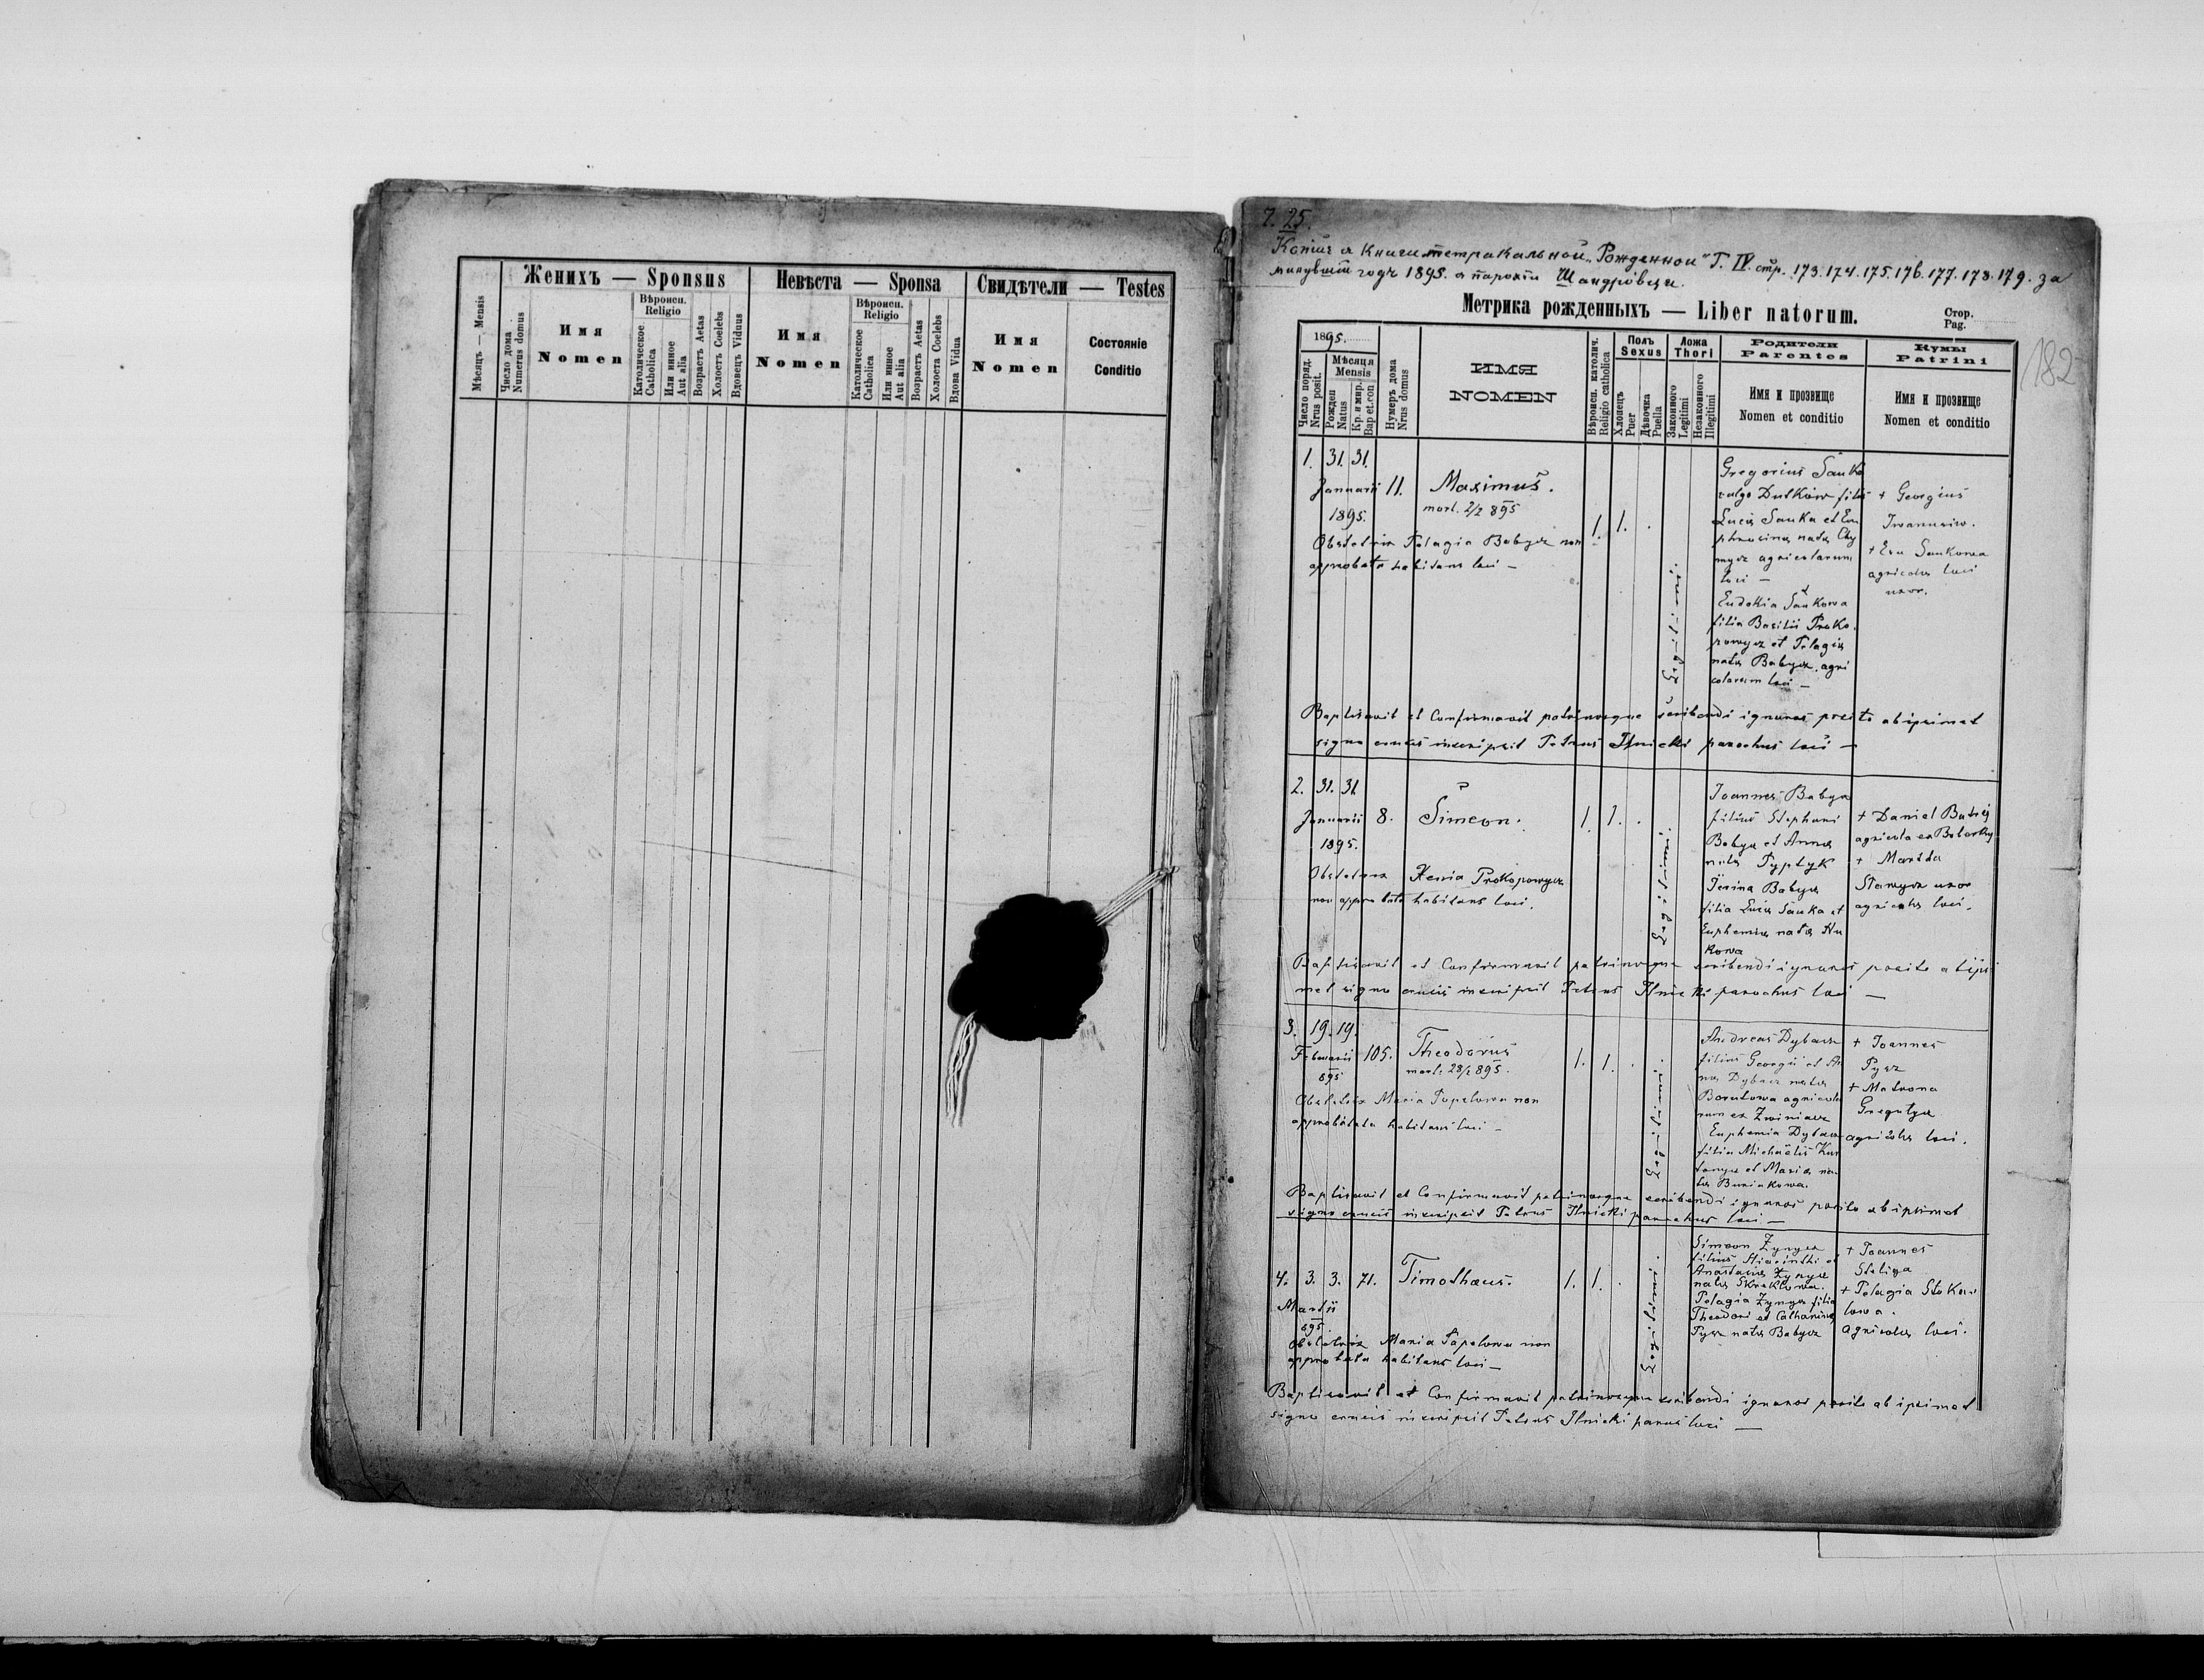 Женихъ — Sponsus
Невѣста — Sponsa
Свидѣтели — Testes
Мѣсяцъ — Mensis
Число дома
Numerus domus
Имя
Nomen
Вѣроисп.
Religio
Католическое
Catholica
Или инное
Aut alia
Возрастъ Aetas
Холостъ Coelebs
Вдовецъ Viduus
Имя
Nomen
Вѣроисп.
Religio
Католическое
Catholica
Или инное
Aut alia
Возрастъ Aetas
Холоста Coelebs
Вдова Vidua
Имя
Nomen
Состояніе
Conditio
25.
Копія з Книги метракальной „Рожденной" Т. IV. стр. 173. 174. 175. 176. 177. 178. 179. за
минувшій годъ 1895. з парохіи Шандровець.
Метрика рожденныхъ — Liber natorum.
Стор.
Pag.
182
1895.
Число поряд.
Nrus posit.
Мѣсяця
Mensis
Рожден
Natus
Кр. и мир.
Bap et.con
Нумеръ дома
Nrus domus
ИМЯ
NOMEN
Вѣроисп. католич.
Religio catholica
Полъ
Sexus
Хлопецъ
Puer
Дѣвочка
Puella
Ложа
Thori
Законного
Legitimi
Незаконного
Illegitimi
Родители
Parentes
Имя и прозвище
Nomen et conditio
Кумы
Patrini
Имя и прозвище
Nomen et conditio
1. 31. 31.
Januarii 11. Maximus.
1895. mort. 2/2 895
1. 1. .
Obstetrix Pelagia Babycz non
approbata habitans loci —
Legitimi.
Gregorius Sanka
vulgo Dutkiw filius
Lucä Sanka et Eu
phrosina nata Chy
mycz agricolarum
loci —
Eudokia Sankowa
filia Basilii Proko
powycz et Pelagia
nata Babycz agri
colarum loci —
+ Georgius
Iwanusiw.
+ Eva Sankowa
agricolä loci
uxor.
Baptisavit et Confirmavit patrinosque scribendi ignaros posito ab ipsimet
signo crucis inscripsit Petrus Ilnicki parochus loci —
2. 31. 31.
Januarii 8. Simeon.
1895.
1. 1. .
Obstetrix Xenia Prokopowycz
non approbata habitans loci.
Legitimi.
Joannes Babycz
filius Stephani
Babycz et Anna
nata Typtyk
Irina Babycz
filia Lucä Sanka et
Euphemia nata
kowa
+ Daniel
agricola ex
+ Martha
uxor
agricolä loci.
Baptisavit et Confirmavit patrinosque scribendi ignaros posito ab ipsi
met signo crucis inscripsit Petrus Ilnicki parochus loci —
3. 19. 19.
Februarii 105. Theodorus
895 mort. 28/2 895.
1. 1. .
Obstetrix Maria Papelowa non
approbata habitans loci —
Legitimi.
Andreas Dybacz
filius Georgii et An
na Dybacz nata
Borutowa agricola
rum ex Zwiniacz
Euphemia Dybacz
filia Michaelis
et Maria na
ta Buniakowa.
+ Joannes
Pysz
+ Matrona
agricolä loci.
Baptisavit et Confirmavit patrinosque scribendi ignaros posito ab ipsimet
signo crucis inscripsit Petrus Ilnicki parochus loci —
4. 3. 3. 71. Timothaeus.
1. 1. .
Martii
895.
Obstetrix Maria Papelowa non
approbata habitans loci —
Legitimi.
Simeon Zynycz
filius Hiacinthi et
Anastasia Zynycz
nata
Pelagia Zynycz filia
Theodori et Catharina
Pysz nata Babycz
+ Joannes
Steliga
+ Pelagia
agricolä loci.
Baptisavit et Confirmavit patrinosque scribendi ignaros posito ab ipsimet
signo crucis inscripsit Petrus Ilnicki parochus loci —